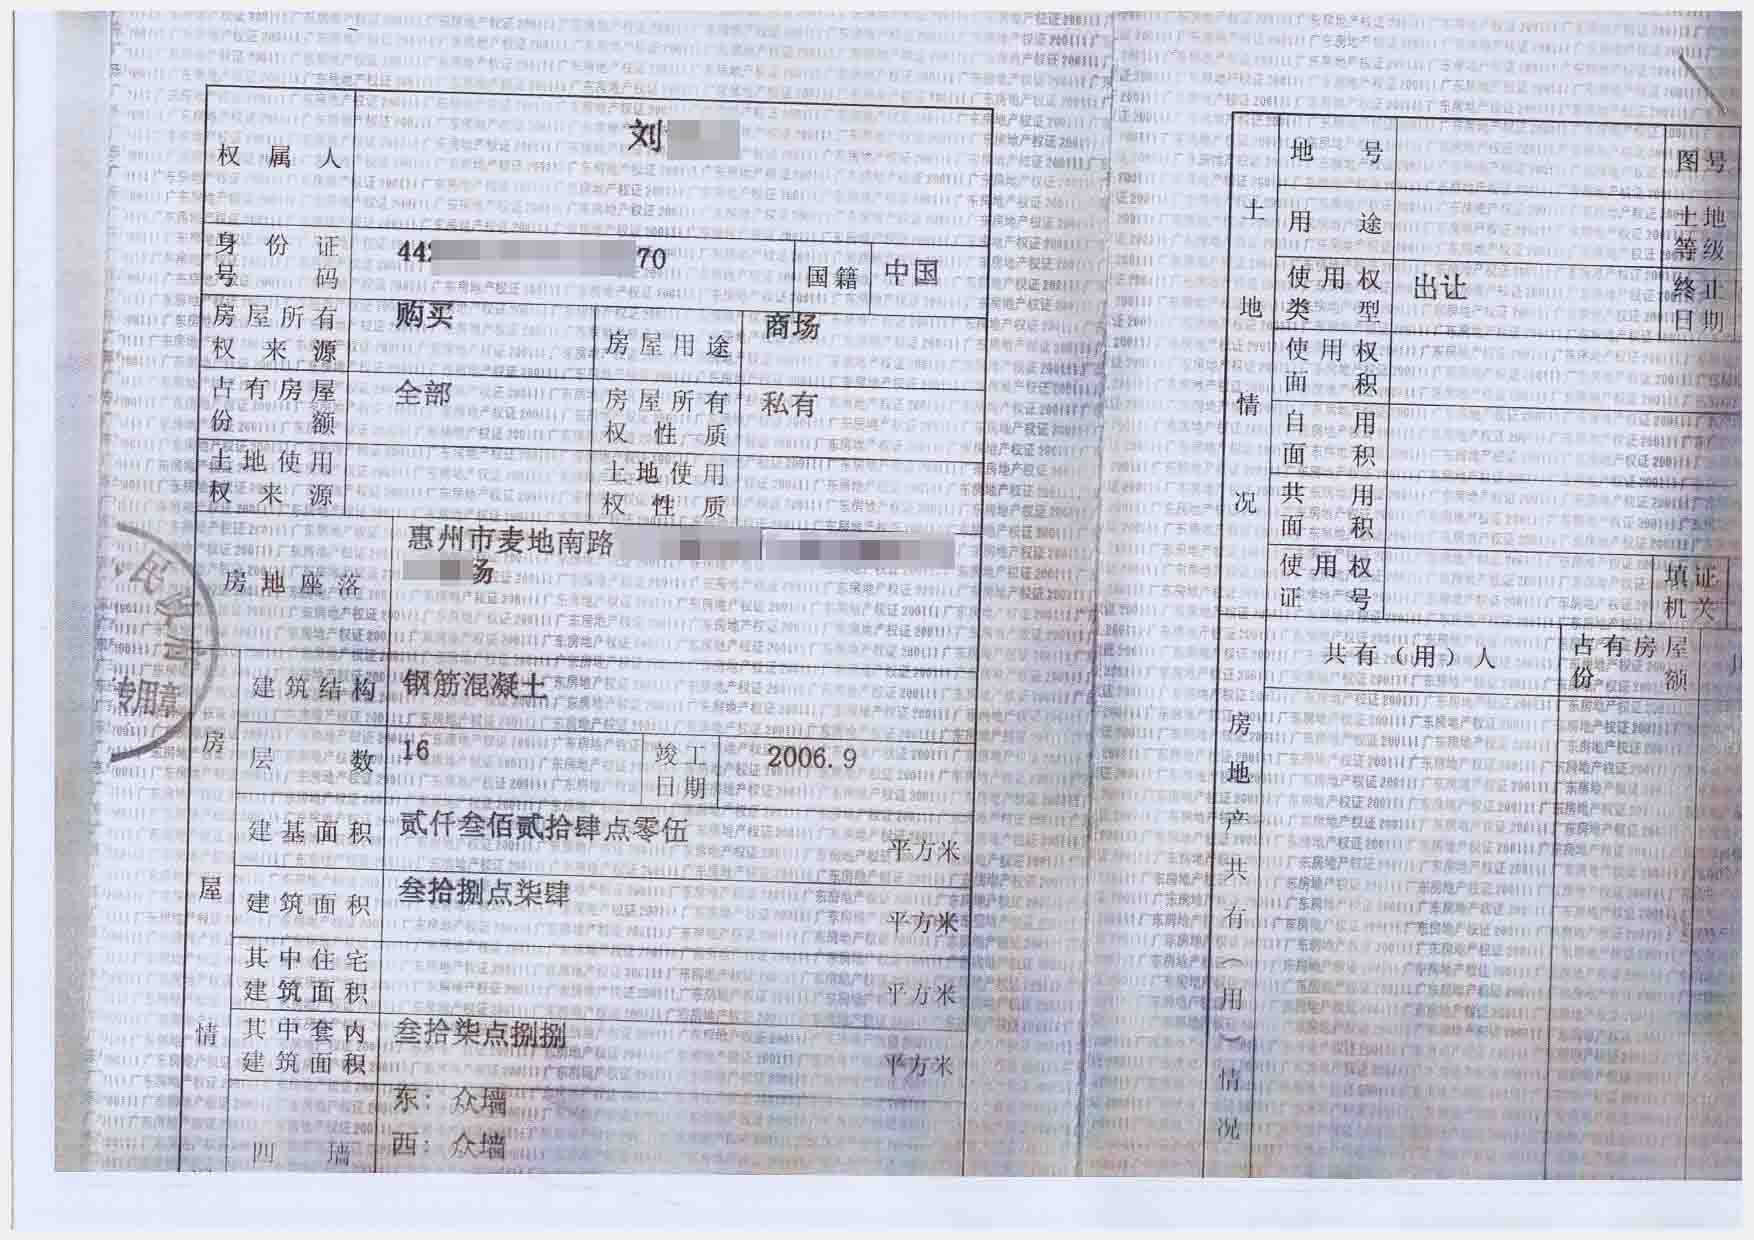 权属人 刘
身份证号码 442 70 国籍 中国
房屋所有权来源 购买 房屋用途 商场
占有房屋份额 全部 房屋所有权性质 私有
土地使用权来源 土地使用权性质
房地座落 惠州市麦地南路
场
房屋情
建筑结构 钢筋混凝土
层数 16 竣工日期 2006.9
建基面积 贰仟叁佰贰拾肆点零伍 平方米
建筑面积 叁拾捌点柒肆 平方米
其中住宅建筑面积 平方米
其中套内建筑面积 叁拾柒点捌捌 平方米
四墙 东：众墙
西：众墙
专用章
土地情况
地号 图号
用途 土地等级
使用权类型 出让 终止日期
使用权面积
自用面积
共用面积
使用权证号 填证机关
房地产共有(用)情况
共有(用)人 占有房屋份额
广东房地产权证200111